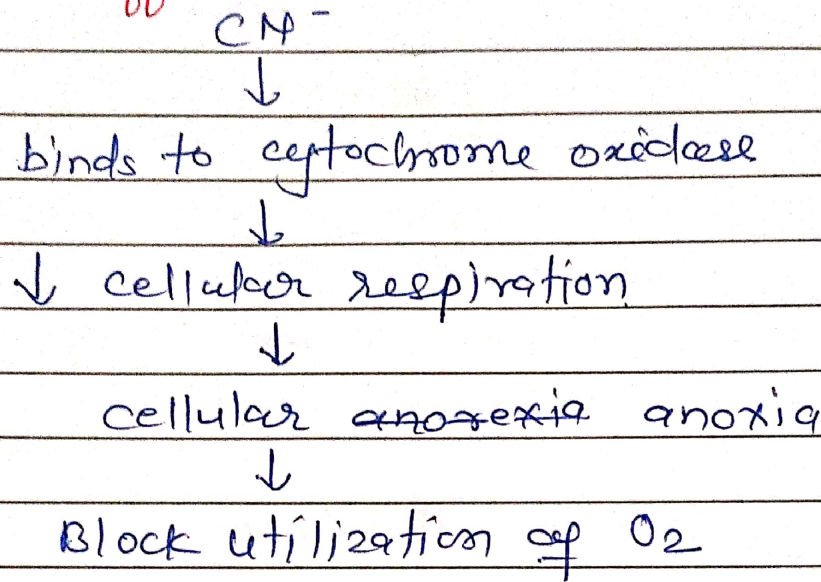 CN⁻
↓
binds to cytochrome oxidase
↓
↓ cellular respiration
↓
cellular anorexia anoxia
↓
Block utilization of O₂